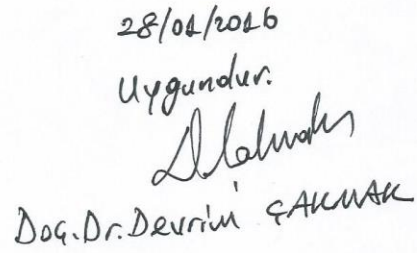 28/01/2016
Uygundur.
Doç.Dr.Devrim ÇAKMAK